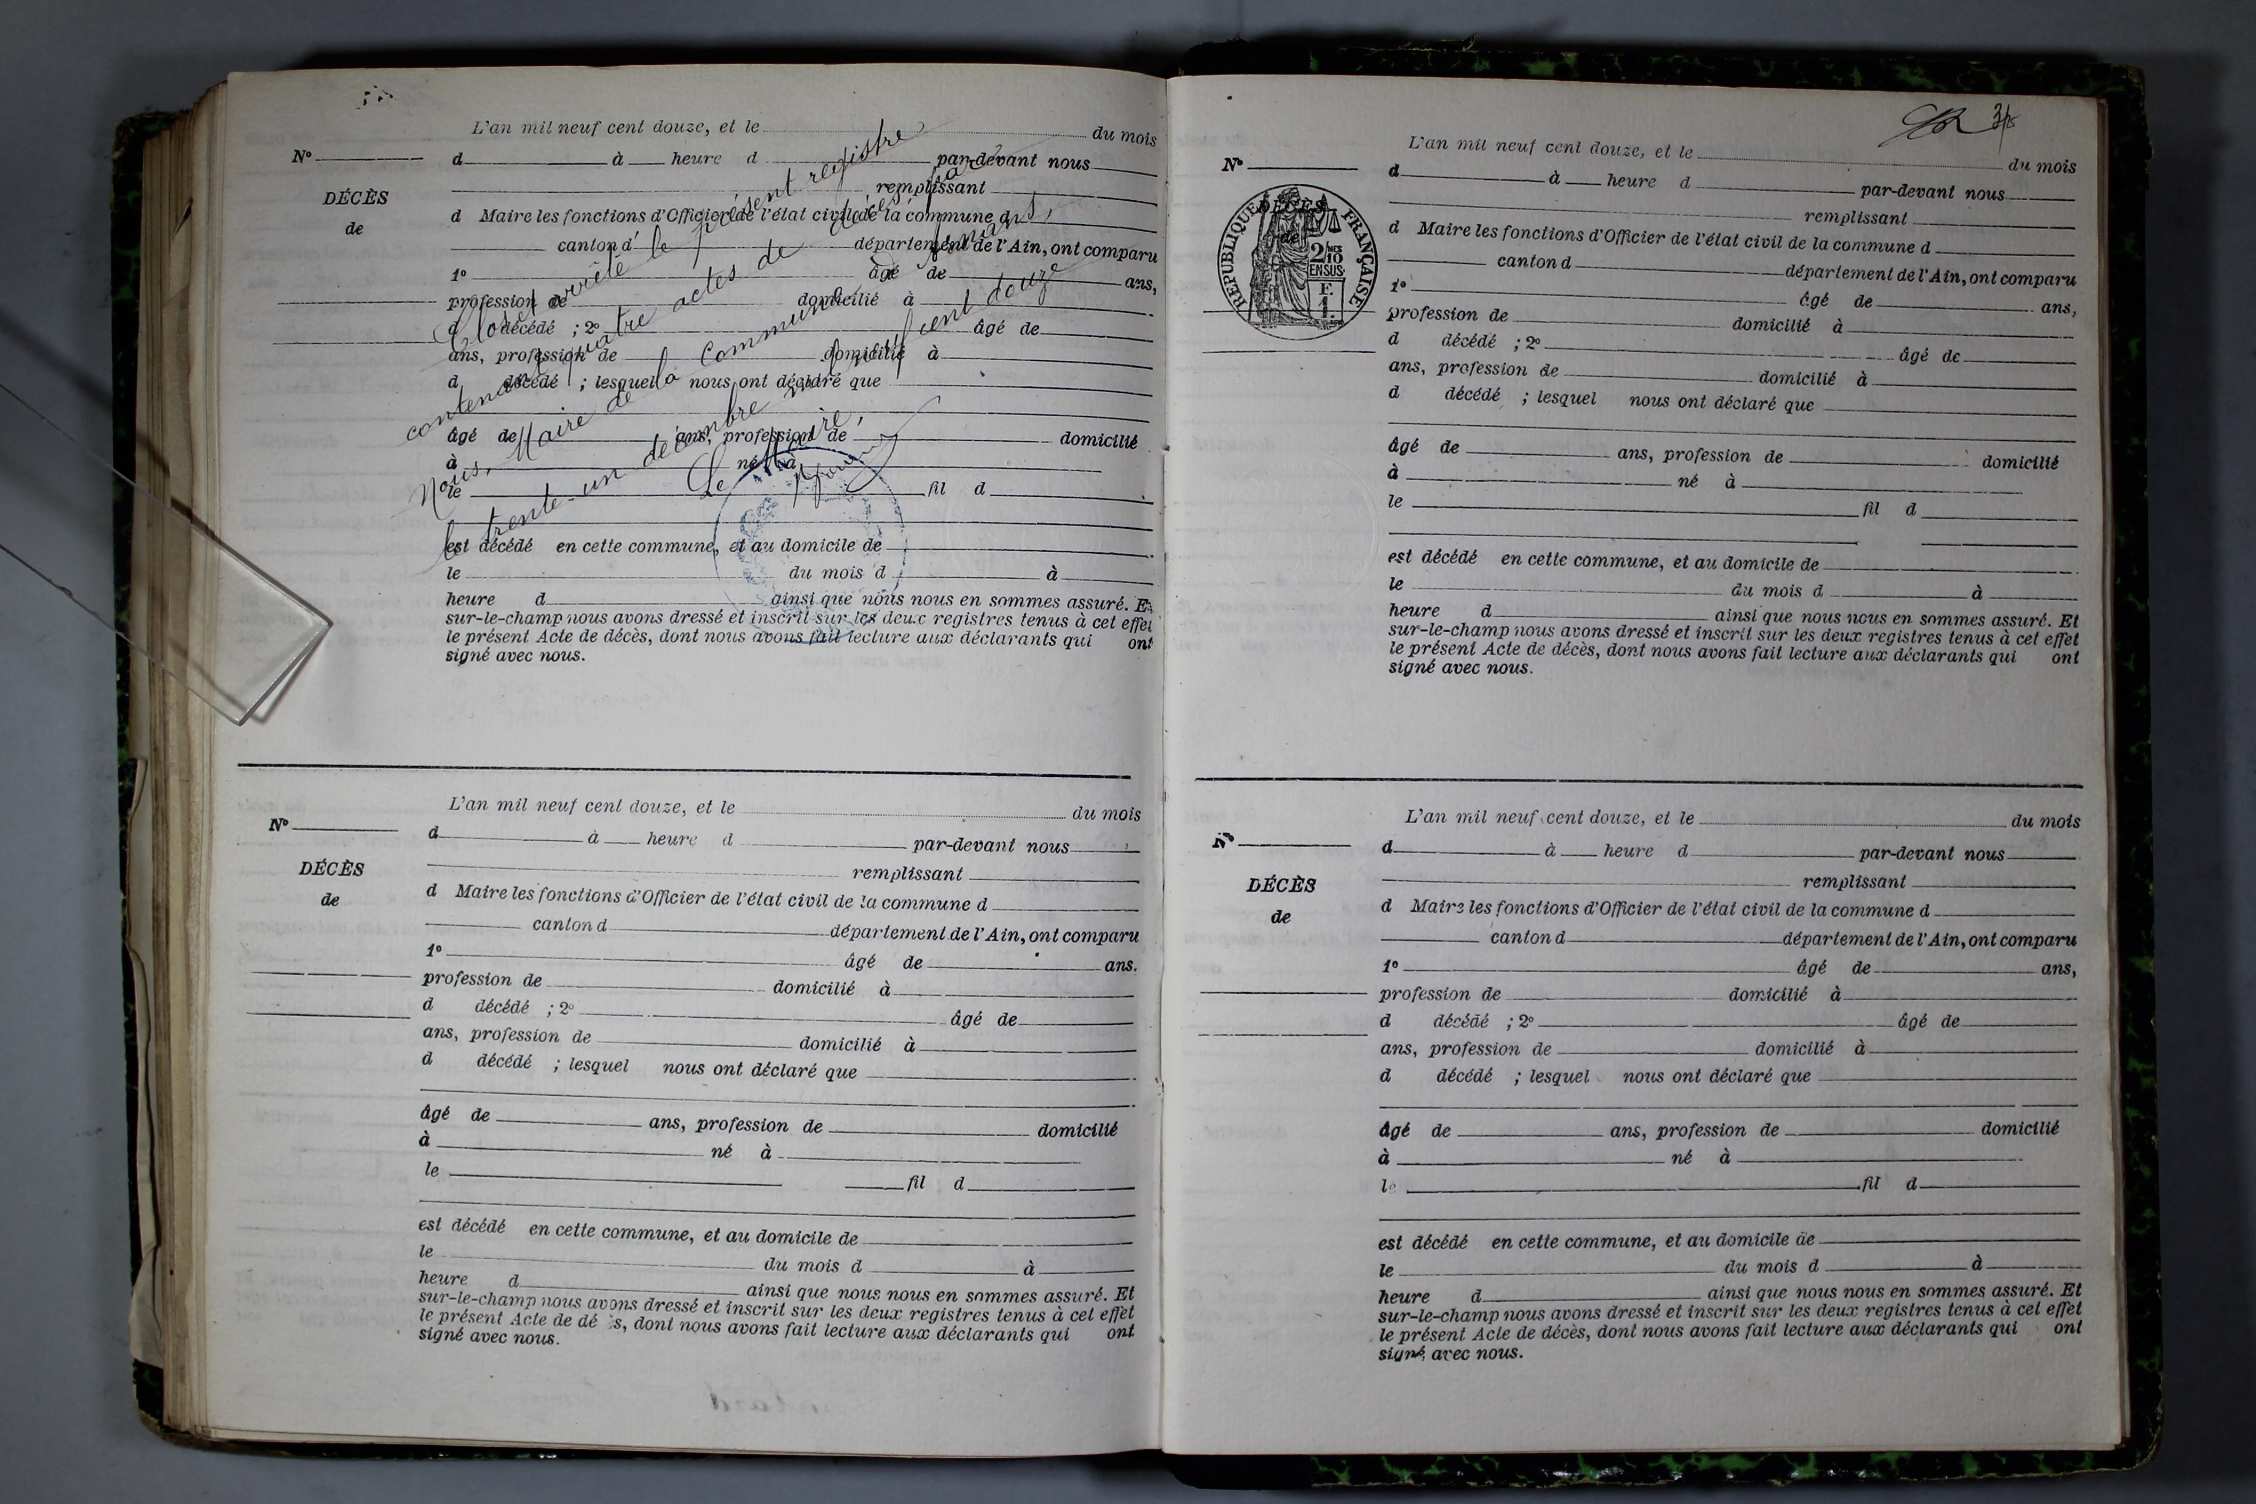 L'an mil neuf cent douze, et le du mois
N° d à heure d par-devant nous
remplissant
DÉCÈS
de
d Maire les fonctions d'Officier de l'état civil de la commune d
canton d département de l'Ain, ont comparu
1° âgé de ans,
profession de domicilié à
d décédé ; 2° âgé de
ans, profession de domicilié à
d décédé ; lesquel nous ont déclaré que
âgé de ans, profession de domicilié
à né à
le fil d
est décédé en cette commune, et au domicile de
le du mois d à
heure d ainsi que nous nous en sommes assuré. Et
sur-le-champ nous avons dressé et inscrit sur les deux registres tenus à cet effet
le présent Acte de décès, dont nous avons fait lecture aux déclarants qui ont
signé avec nous.
Clos et arrêté le présent registre
contenant quatre actes de décès, par
Nous, Maire de la commune de
le trente-un décembre mil neuf cent douze
Le Maire,
L'an mil neuf cent douze, et le du mois
N° d à heure d par-devant nous
remplissant
DÉCÈS
de
d Maire les fonctions d'Officier de l'état civil de la commune d
canton d département de l'Ain, ont comparu
1° âgé de ans.
profession de domicilié à
d décédé ; 2° âgé de
ans, profession de domicilié à
d décédé ; lesquel nous ont déclaré que
âgé de ans, profession de domicilié
à né à
le fil d
est décédé en cette commune, et au domicile de
le du mois d à
heure d ainsi que nous nous en sommes assuré. Et
sur-le-champ nous avons dressé et inscrit sur les deux registres tenus à cet effet
le présent Acte de dé s, dont nous avons fait lecture aux déclarants qui ont
signé avec nous.
L'an mil neuf cent douze, et le du mois
N° d à heure d par-devant nous
remplissant
DÉCÈS
de
RÉPUBLIQUE FRANÇAISE
2/10
EN SUS
F.
1.
d Maire les fonctions d'Officier de l'état civil de la commune d
canton d département de l'Ain, ont comparu
1° âgé de ans,
profession de domicilié à
d décédé ; 2° âgé de
ans, profession de domicilié à
d décédé ; lesquel nous ont déclaré que
âgé de ans, profession de domicilié
à né à
le fil d
est décédé en cette commune, et au domicile de
le du mois d à
heure d ainsi que nous nous en sommes assuré. Et
sur-le-champ nous avons dressé et inscrit sur les deux registres tenus à cet effet
le présent Acte de décès, dont nous avons fait lecture aux déclarants qui ont
signé avec nous.
L'an mil neuf cent douze, et le du mois
N° d à heure d par-devant nous
remplissant
DÉCÈS
de
d Maire les fonctions d'Officier de l'état civil de la commune d
canton d département de l'Ain, ont comparu
1° âgé de ans,
profession de domicilié à
d décédé ; 2° âgé de
ans, profession de domicilié à
d décédé ; lesquel nous ont déclaré que
âgé de ans, profession de domicilié
à né à
le fil d
est décédé en cette commune, et au domicile de
le du mois d à
heure d ainsi que nous nous en sommes assuré. Et
sur-le-champ nous avons dressé et inscrit sur les deux registres tenus à cet effet
le présent Acte de décès, dont nous avons fait lecture aux déclarants qui ont
signé avec nous.